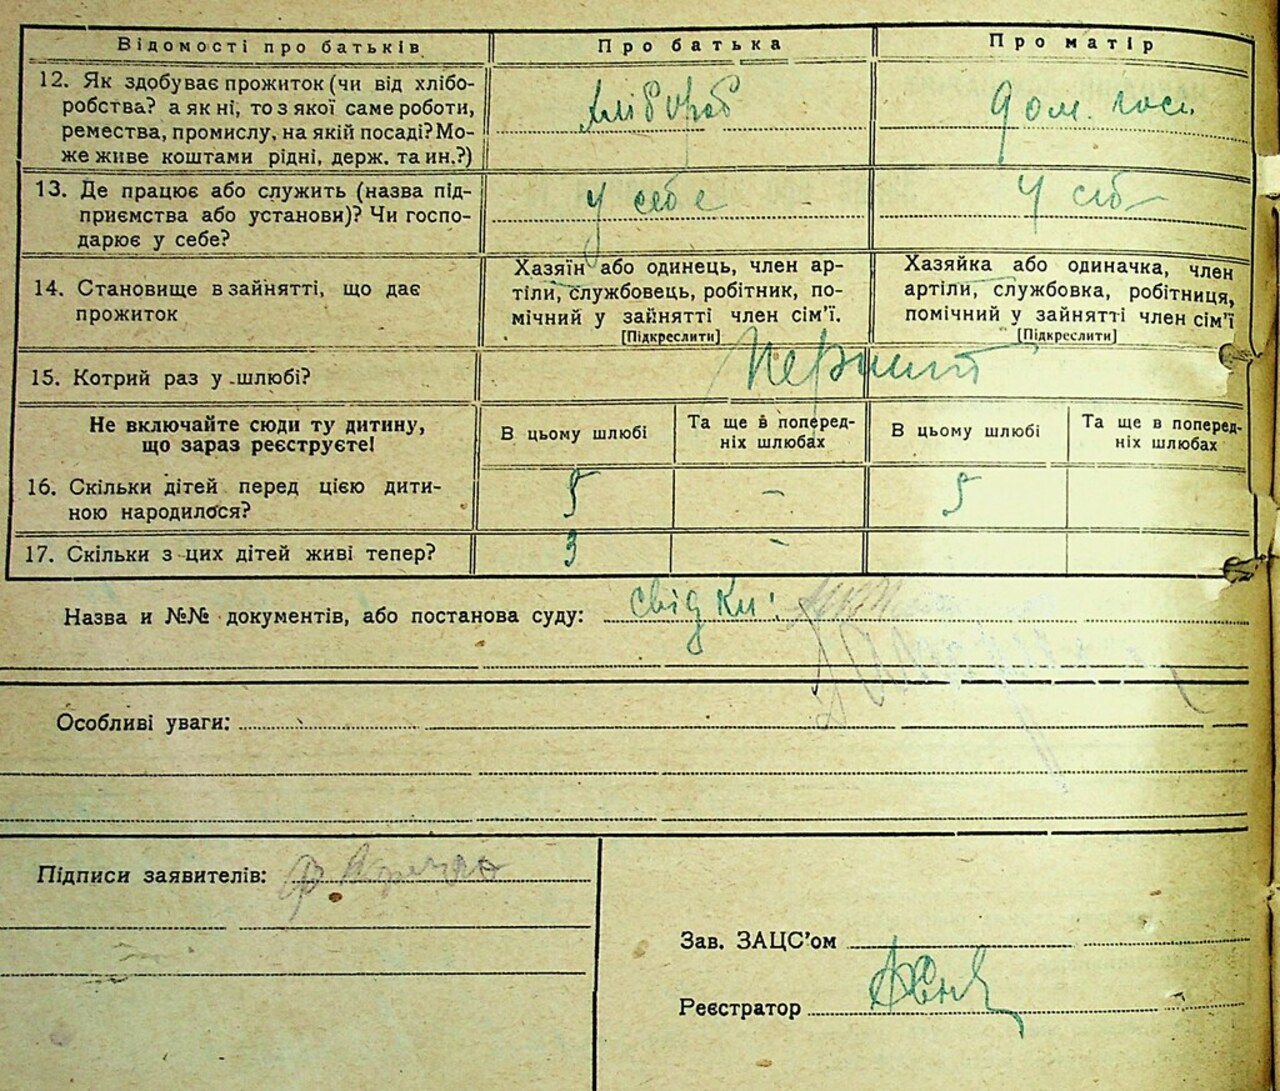 Відомості про батьків Про батька Про матір
12. Як здобуває прожиток (чи від хлібо-
робства? а як ні, то з якої саме роботи,
ремества, промислу, на якій посаді? Мо-
же живе коштами рідні, держ. та ин.?)
хлібороб дом. госп.
13. Де працює або служить (назва під-
приємства або установи)? Чи госпо-
дарює у себе?
у себе у себ
14. Становище в зайнятті, що дає
прожиток
Хазяїн або одинець, член ар-
тіли, службовець, робітник, по-
мічний у зайнятті член сім'ї.
[Підкреслити]
Хазяйка або одиначка, член
артіли, службовка, робітниця,
помічний у зайнятті член сім'ї
[Підкреслити]
15. Котрий раз у шлюбі?
Перший
Не включайте сюди ту дитину,
що зараз реєструєте!
В цьому шлюбі
Та ще в поперед-
ніх шлюбах
В цьому шлюбі
Та ще в поперед-
ніх шлюбах
16. Скільки дітей перед цією дити-
ною народилося?
5 - 5
17. Скільки з цих дітей живі тепер?
3 -
Назва и №№ документів, або постанова суду: свідки:
Особливі уваги:
Підписи заявителів:
Зав. ЗАЦС'ом
Реєстратор